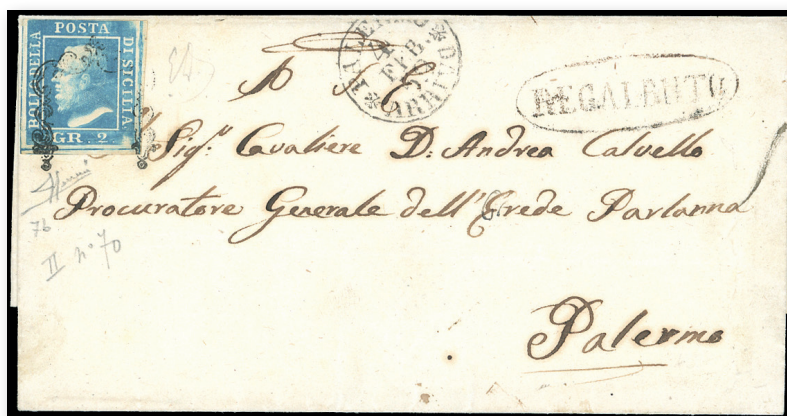 BOLLO DELLA
POSTA
DI SICILIA
GR. 2
PALERMO
4
FEB
ARRIVO
REGALBUTO
A S. E.
Sig.r Cavaliere D. Andrea Calvello
Procuratore Generale dell'Erede Partanna
Palermo
7b
II n° 70